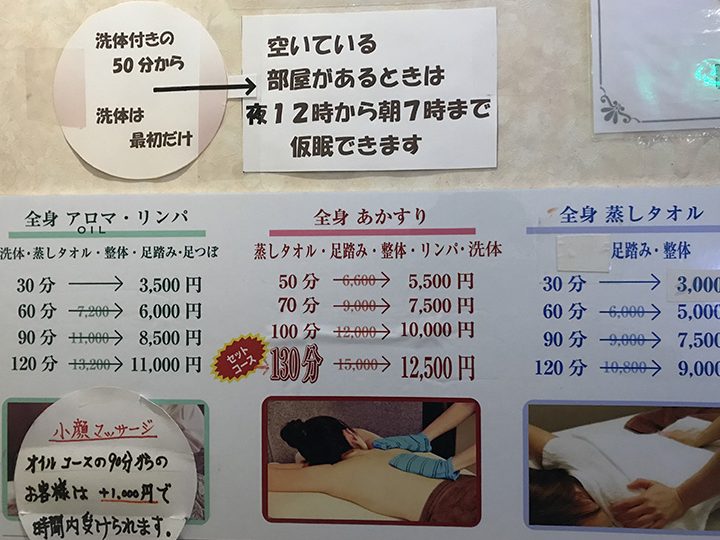 洗体付きの
50分から
洗体は
最初だけ
空いている
部屋があるときは
夜12時から朝7時まで
仮眠できます
全身 アロマ・リンパ
OIL
洗体・蒸しタオル・整体・足踏み・足つぼ
30分 → 3,500円
60分 7,200→ 6,000円
90分 11,000→ 8,500円
120分 13,200→ 11,000円
小顔マッサージ
オイルコースの90分からの
お客様は +1,000円で
時間内受けられます。
全身 あかすり
蒸しタオル・足踏み・整体・リンパ・洗体
50分 6,600→ 5,500円
70分 9,000→ 7,500円
100分 12,000→ 10,000円
セット
コース
130分 15,000→ 12,500円
全身 蒸しタオル
足踏み・整体
30分 → 3,000
60分 6,000→ 5,000
90分 9,000→ 7,500
120分 10,800→ 9,000